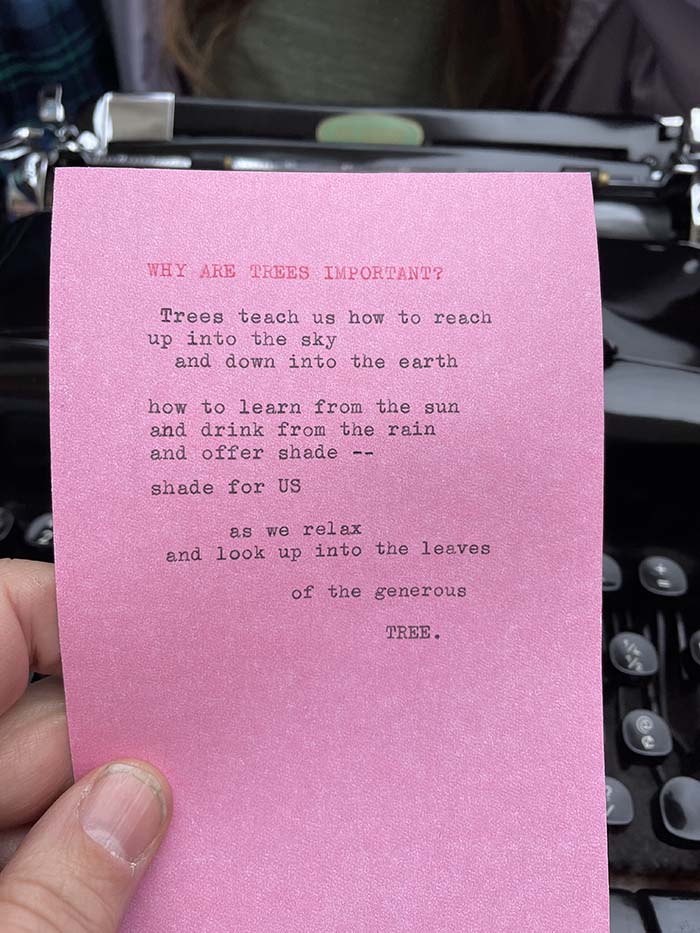 WHY ARE TREES IMPORTANT?
Trees teach us how to reach
up into the sky
and down into the earth
how to learn from the sun
and drink from the rain
and offer shade --
shade for US
as we relax
and look up into the leaves
of the generous
TREE.